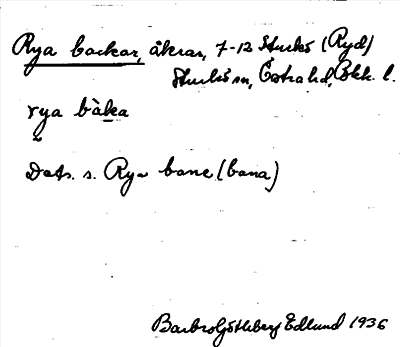 Rya backar, åkrar, 7-12 Sturkö (Ryd)
Sturkö sn, Östra hd, Blek. l.
rya bàka
Dets. s. Rya bane (bana)
Barbro Götheberg Edlund 1936